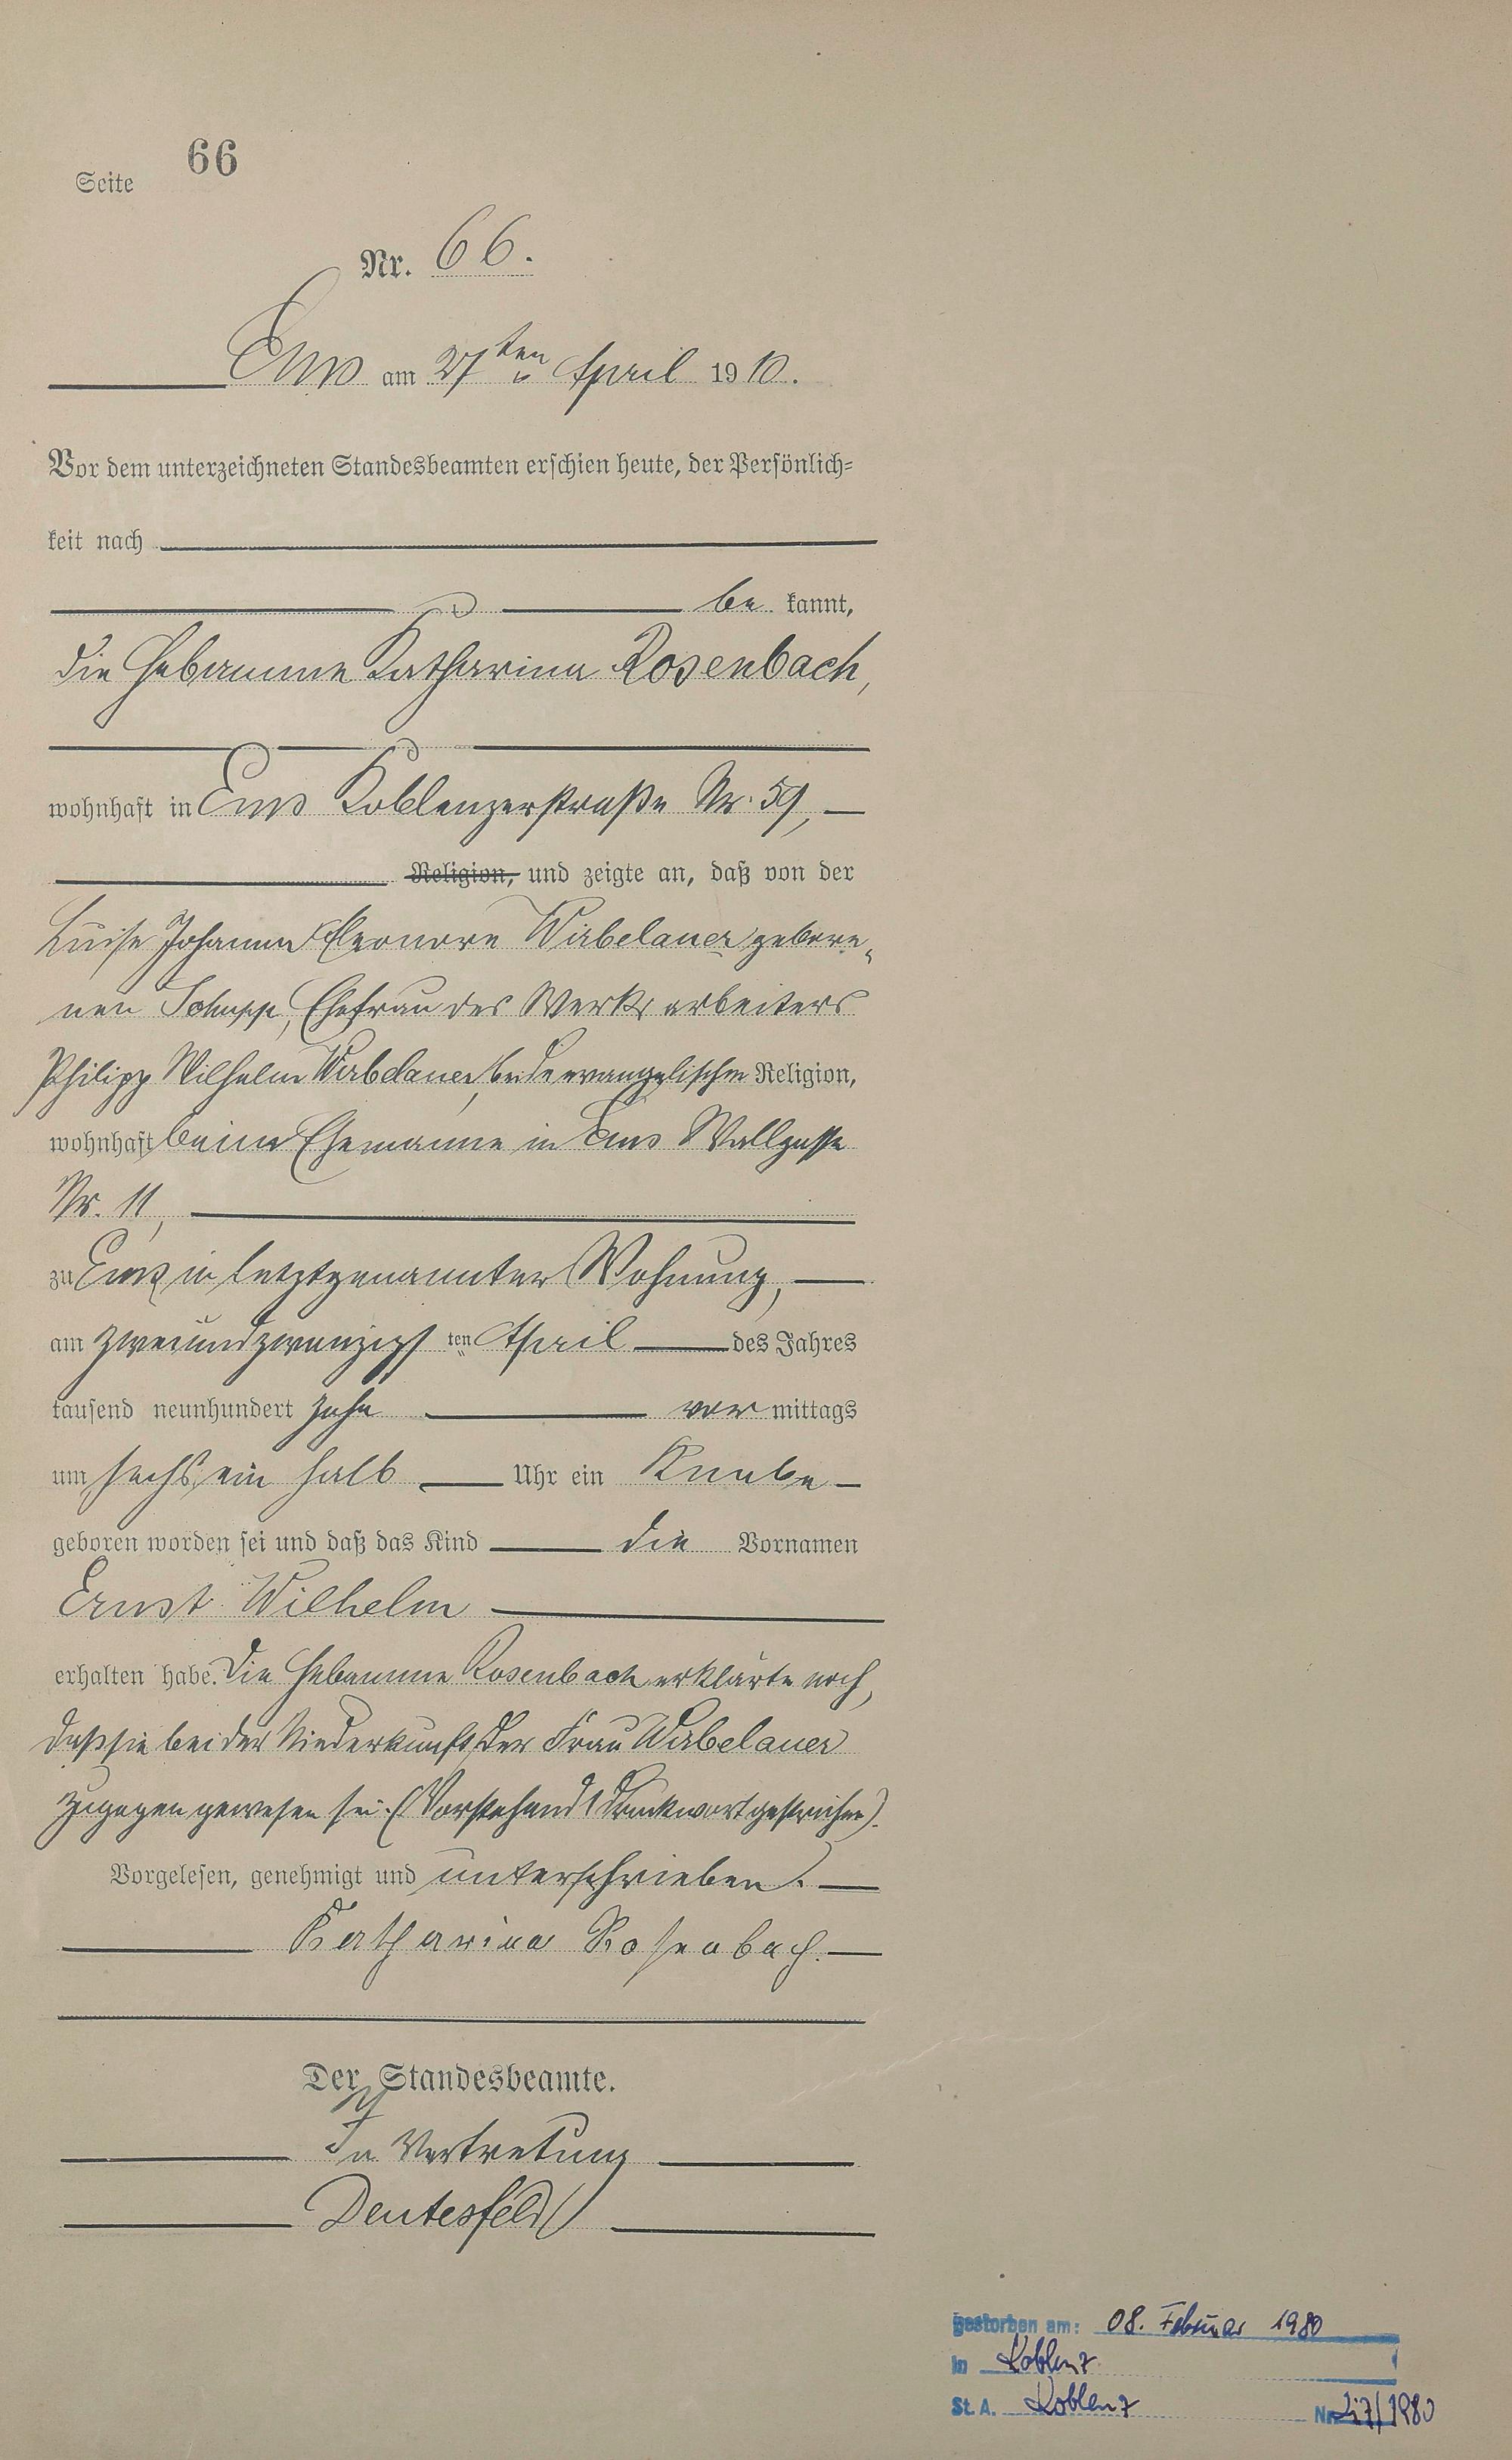 Seite 66
Nr. 66.
Ems am 27ten April 1910.
Vor dem unterzeichneten Standesbeamten erschien heute, der Persönlich=
keit nach
be kannt,
die Hebamme Katharina Rosenbach,
wohnhaft in Ems Koblenzerstraße Nr. 59,
Religion, und zeigte an, daß von der
Luise Johanna Eleonore Wirbelauer gebore„
nen Schupp, Ehefrau des Werksarbeiters
Philipp Wilhelm Wirbelauer, beide evangelischer Religion,
wohnhaft beim Ehemanne in Ems Wallgasse
Nr. 11,
zu Ems in letztgenannter Wohnung,
am zweiundzwanzigsten April des Jahres
tausend neunhundert zehn vor mittags
um sechs ein halb Uhr ein Knabe
geboren worden sei und daß das Kind die Vornamen
Ernst Wilhelm
erhalten habe. Die Hebamme Rosenbach erklärte noch,
daß sie bei der Niederkunft der Frau Wirbelauer
zugegen gewesen sei. (Vorstehend 1 Druckwort gestrichen).
Vorgelesen, genehmigt und unterschrieben.
Katharina Rosenbach.
Der Standesbeamte.
In Vertretung
Deutesfeld
gestorben am: 08. Februar 1980
in Koblenz
St. A. Koblenz Nr. /1980